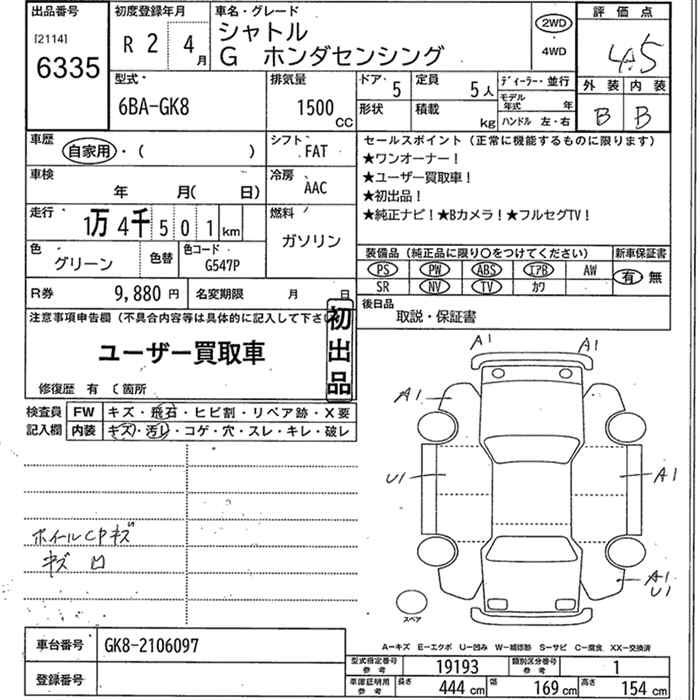 出品番号 初度登録年月 車名・グレード 評価点
[2114] R 2 4月 シャトル 2WD 4.5
6335 G ホンダセンシング 4WD
型式 排気量 ドア・ 5 定員 5人 ディーラー・並行 外装 内装
6BA-GK8 1500 CC 形状 積載 kg モデル年式 年 B B
ハンドル 左・右
車歴 自家用・( ) シフト FAT セールスポイント(正常に機能するものに限ります)
★ワンオーナー!
車検 年 月( 日) 冷房 AAC ★ユーザー買取車!
★初出品!
走行 1万4千501km 燃料 ガソリン ★純正ナビ!★Bカメラ!★フルセグTV!
色 グリーン 色替 色コード G547P 装備品(純正品に限り○をつけてください) 新車保証書
PS PW ABS エアB AW 有 無
SR NV TV カワ
R券 9,880円 名変期限 月 日 後日品
取説・保証書
注意事項申告欄(不具合内容等は具体的に記入して下さい
ユーザー買取車 初出品
修復歴 有 ( 箇所
検査員記入欄 FW キズ・飛石・ヒビ割・リペア跡・X要
内装 キズ・汚レ・コゲ・穴・スレ・キレ・破レ
A1 A1
A1
U1 A1
ホイールCPキズ
キズ 凹
A1
U1
スペア
A=キズ E=エクボ U=凹み W=補修跡 S=サビ C=腐食 XX=交換済
車台番号 GK8-2106097
登録番号
型式指定番号参考 19193 類別区分番号参考 1
車庫証明用参考 長さ 444cm 幅 169cm 高さ 154cm